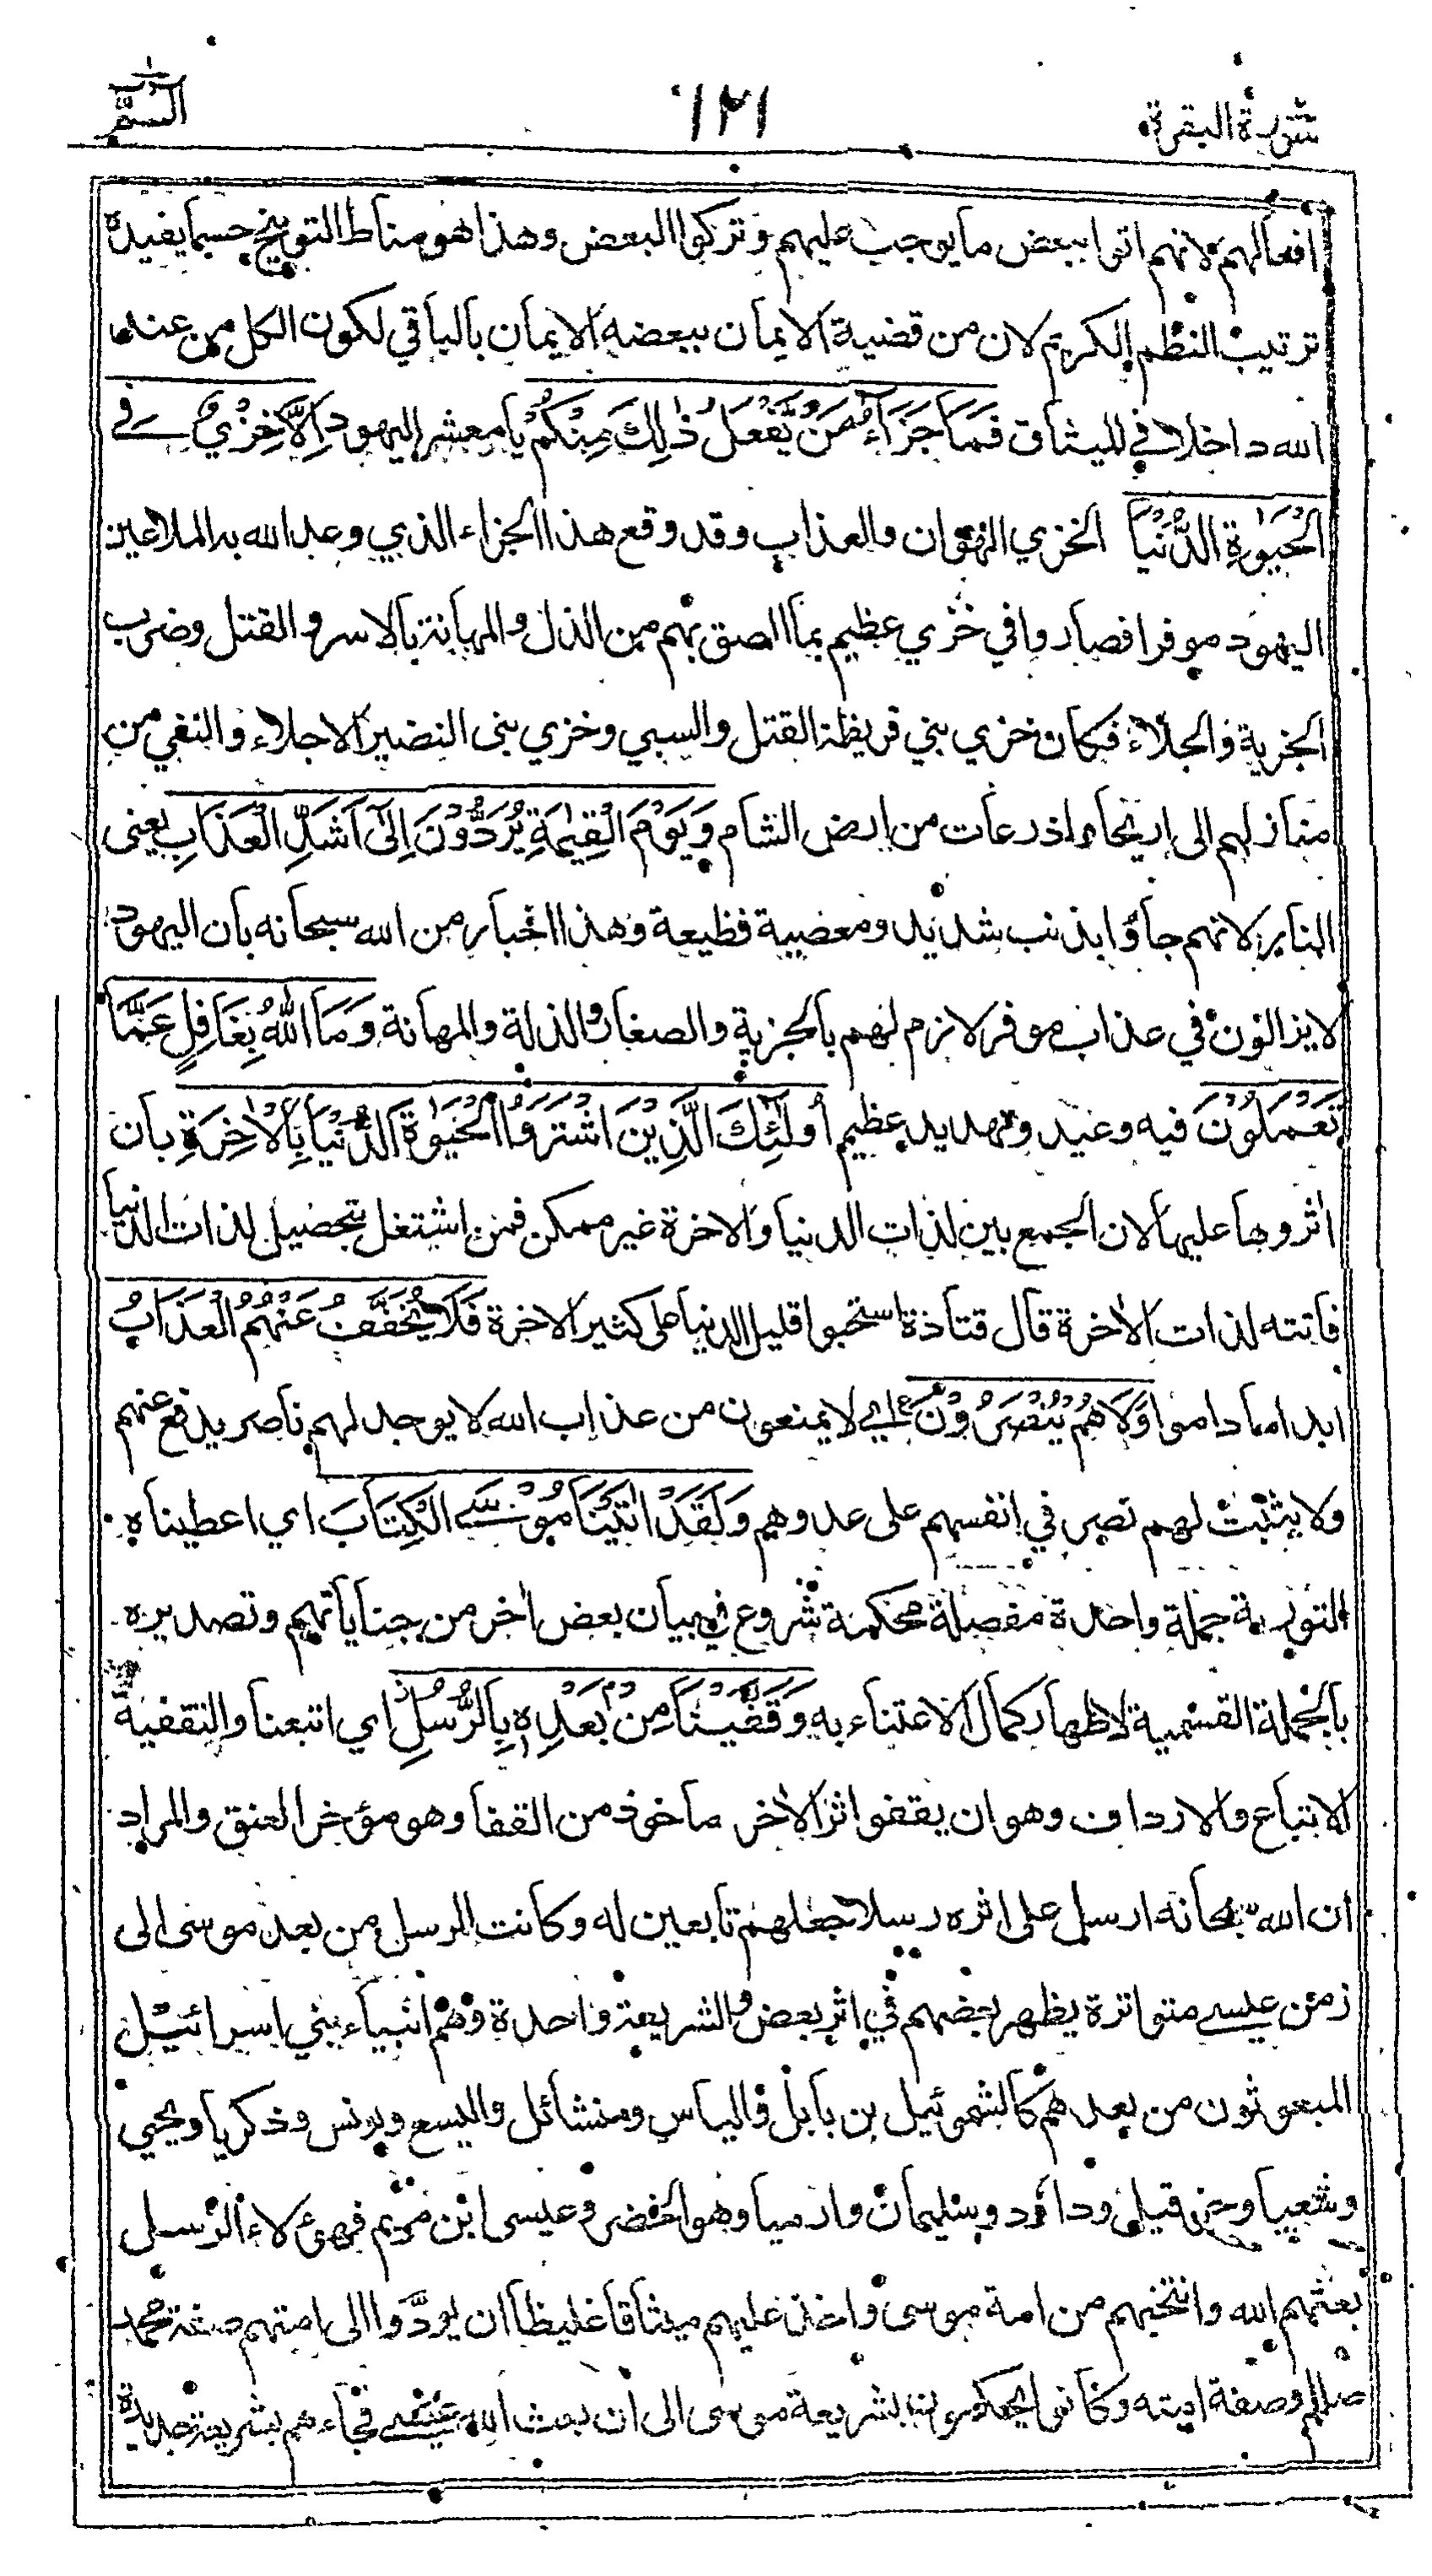 سورة البقرة
١٢١
الـم
افعالهم لانهم اتوا ببعض ما يوجب عليهم وتركوا البعض وهذا هو مناط التوبيخ حسبما يفيده
ترتيب النظم الكريم لان من قضية الايمان ببعضه الايمان بالباقي لكون الكل من عند
الله داخلا في الميثاق فَمَا جَزَآءُ مَن يَّفْعَلُ ذٰلِكَ مِنْكُمْ يا معشر اليهود اِلَّا خِزْيٌ فِي
الْحَيٰوةِ الدُّنْيَا الخزي الهوان والعذاب وقد وقع هذا الجزاء الذي وعد الله به الملاعين
اليهود موفرا فصاروا في خزي عظيم بما الصق بهم من الذل والمهانة بالاسر والقتل وضرب
الجزية والجلاء فكان خزي بني قريظة القتل والسبي وخزي بني النضير الاجلاء والنفي من
منازلهم الى اريحاء واذرعات من ارض الشام وَيَوْمَ الْقِيٰمَةِ يُرَدُّوْنَ اِلٰٓى اَشَدِّ الْعَذَابِ يعنى
النار لانهم جاؤا بذنب شديد ومعصية فظيعة وهذا اخبار من الله سبحانه بان اليهود
لايزالون في عذاب موفر لازم لهم بالجزية والصغار والذلة والمهانة وَمَا اللّٰهُ بِغَافِلٍ عَمَّا
تَعْمَلُوْنَ فيه وعيد وتهديد عظيم اُولٰٓئِكَ الَّذِيْنَ اشْتَرَوُا الْحَيٰوةَ الدُّنْيَا بِالْاٰخِرَةِ بان
اثروها عليها لان الجمع بين لذات الدنيا والاخرة غير ممكن فمن اشتغل بتحصيل لذات الدنيا
فاتته لذات الاخرة قال قتادة استحبوا قليل الدنيا على كثير الاخرة فَلَا يُخَفَّفُ عَنْهُمُ الْعَذَابُ
ابدا ماداموا وَلَا هُمْ يُنْصَرُوْنَ اي لا يمنعون من عذاب الله لا يوجد لهم ناصر يدفع عنهم
ولا يثبت لهم نصر في انفسهم على عدوهم وَلَقَدْ اٰتَيْنَا مُوْسَے الْكِتَابَ اي اعطيناه
التورية جملة واحدة مفصلة محكمة شروع في بيان بعض اخر من جناياتهم وتصديره
بالجملة القسمية لاظهار كمال الاعتناء به وَقَفَّيْنَا مِنْۢ بَعْدِهٖ بِالرُّسُلِ اي اتبعنا والتقفية
الاتباع والارداف وهو ان يقفو اثر الاخر ماخوذ من القفا وهو مؤخر العنق والمراد
ان الله سبحانه ارسل على اثره رسلا جعلهم تابعين له وكانت الرسل من بعد موسى الى
زمن عيسے متواترة يظهر بعضهم في اثر بعض والشريعة واحدة وهم انبياء بني اسرائيل
المبعوثون من بعدهم كالشموئيل بن بابل والياس ومنشائل واليسع ويونس وذكريا ويحيى
وشعيا وحزقيل وداؤد وسليمان وارميا وهو الخضر وعيسى ابن مريم فهؤلاء الرسل
بعثهم الله وانتخبهم من امة موسى واخذ عليهم ميثاقا غليظا ان يودّوا الى امتهم صفة محمد
صللم وصفة امته وكانوا يحكمون بشريعة موسى الى ان بعث الله عيسے فجاءهم بشريعة جديدة